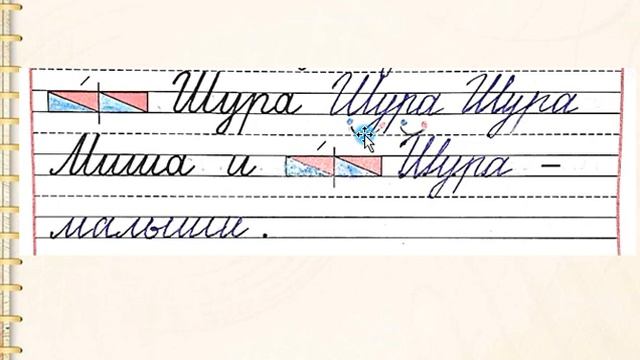 Шура Шура Шура
Миша и Шура –
малыши.